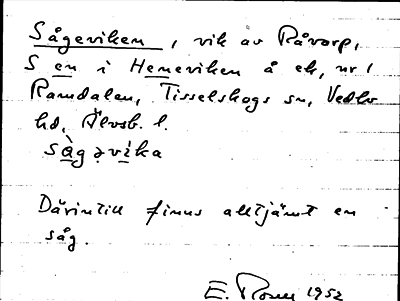 Sågeviken, vik av Råvarp,
S en i Hemeviken å ek, nr 1
Ramdalen, Tisselskogs sn, Vedbo
hd, Älvsb. l.
sàgəvika
Därintill finns alltjämt en
såg.
E. Rosen 1952